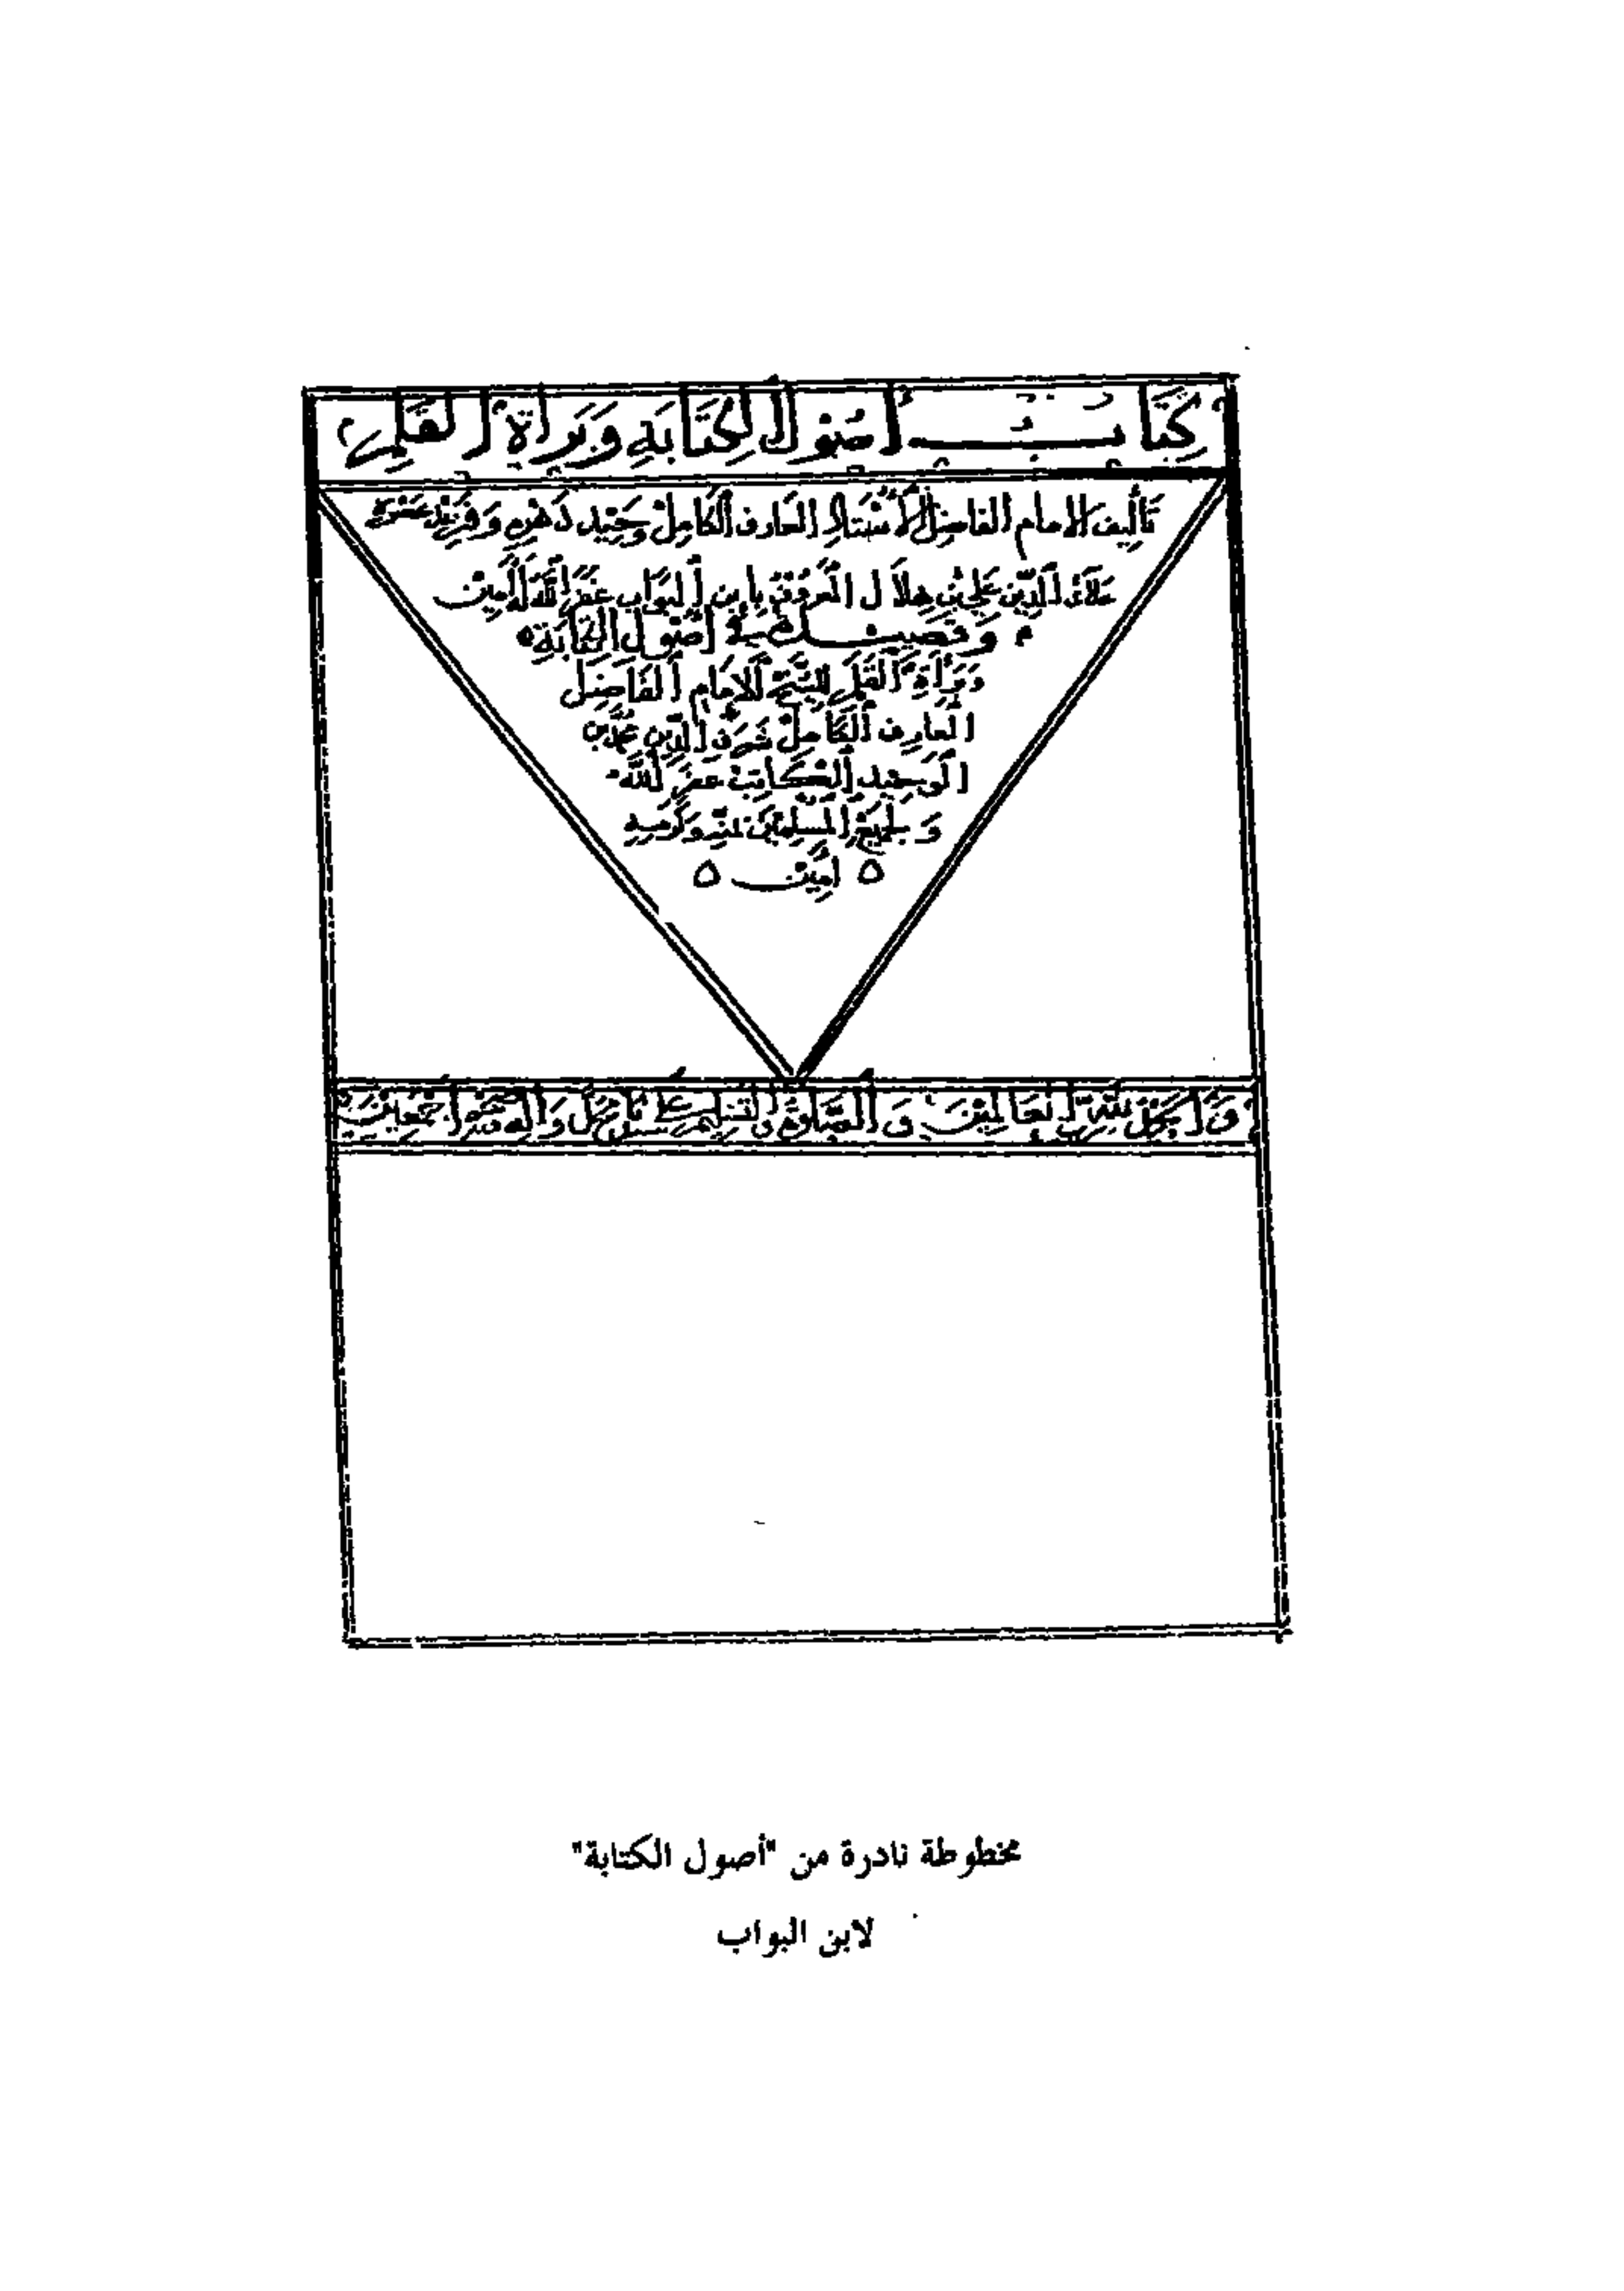 كِتَابُ أُصُولِ الكِتَابَةِ وَبَرَاةِ القَلَمِ
تَأْلِيفُ الإمام الفاضل الأستاذ العارف الكامل وَحِيد دَهْرِهِ وَفَرِيد عَصْرِهِ
عَلَاءُ الدِّين عَلِي بْن هِلَال المعروف بابن البَوَّاب غَفَرَ اللهُ لَهُ آمِين
وَقصيد في أُصُول الكِتَابَةِ
وَبَرَاةِ القَلَم لِلشَّيْخ الإمَام الفَاضِل
العَارِف الكَامِل شَرَف الدِّين مُحَمَّد بن
الوَحِيد الكَاتِب غَفَرَ اللهُ
وَلِجَمِيع المُسْلِمِين بِمَنِّهِ وَكَرَمِهِ
آمِين
وَالحَمْدُ لِلَّهِ رَبِّ العَالَمِينَ وَالصَّلَاةُ وَالتسليم على سَيِّدِنَا مُحَمَّد وَآلِهِ وَصَحْبِهِ أَجْمَعِينَ
مخطوطة نادرة من "أصول الكتابة"
لابن البواب